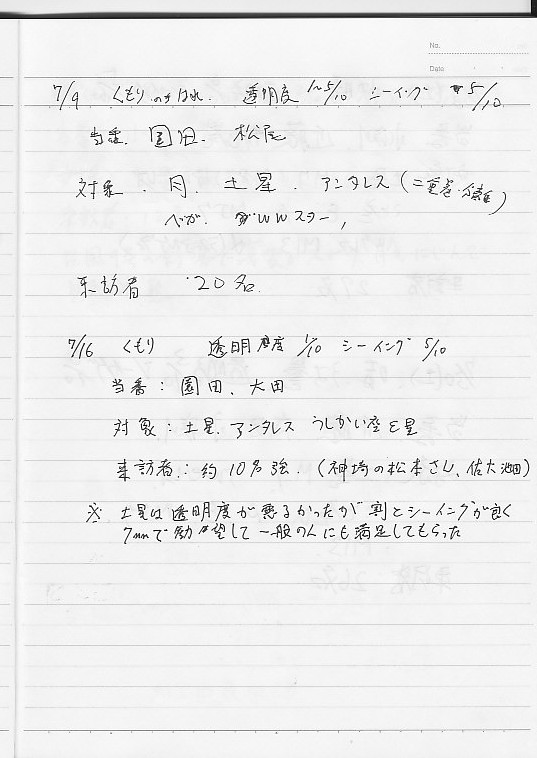 No.
Date
7/9 くもりのちはれ. 透明度 1~5/10 シーイング 5/10
当番. 園田. 松尾
対象. 月. 土星. アンタレス(二重星・分離)
ベガ. ダWWスター,
来訪者 ・20名.
7/16 くもり 透明度 1/10 シーイング 5/10
当番: 園田、大田
対象: 土星. アンタレス うしかい座ε星
来訪者: 約10名強. (神埼の松本さん、佐大池田)
※ 土星は透明度が悪るかったが割とシーイングが良く
7mmで 望して一般の人にも満足してもらった